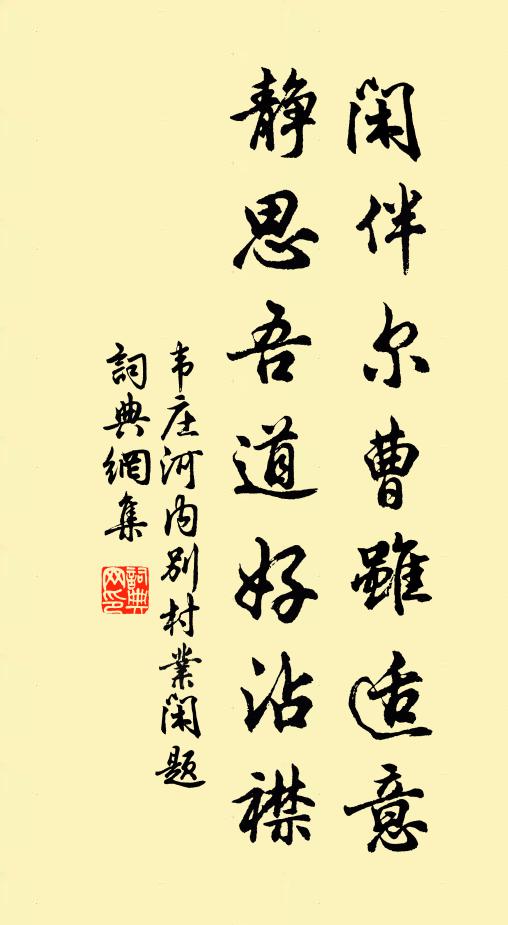 闲伴尔曹雖适意
静思吾道好沾襟
韦庄河内别村業闲題
詞典網集
詞典
网印